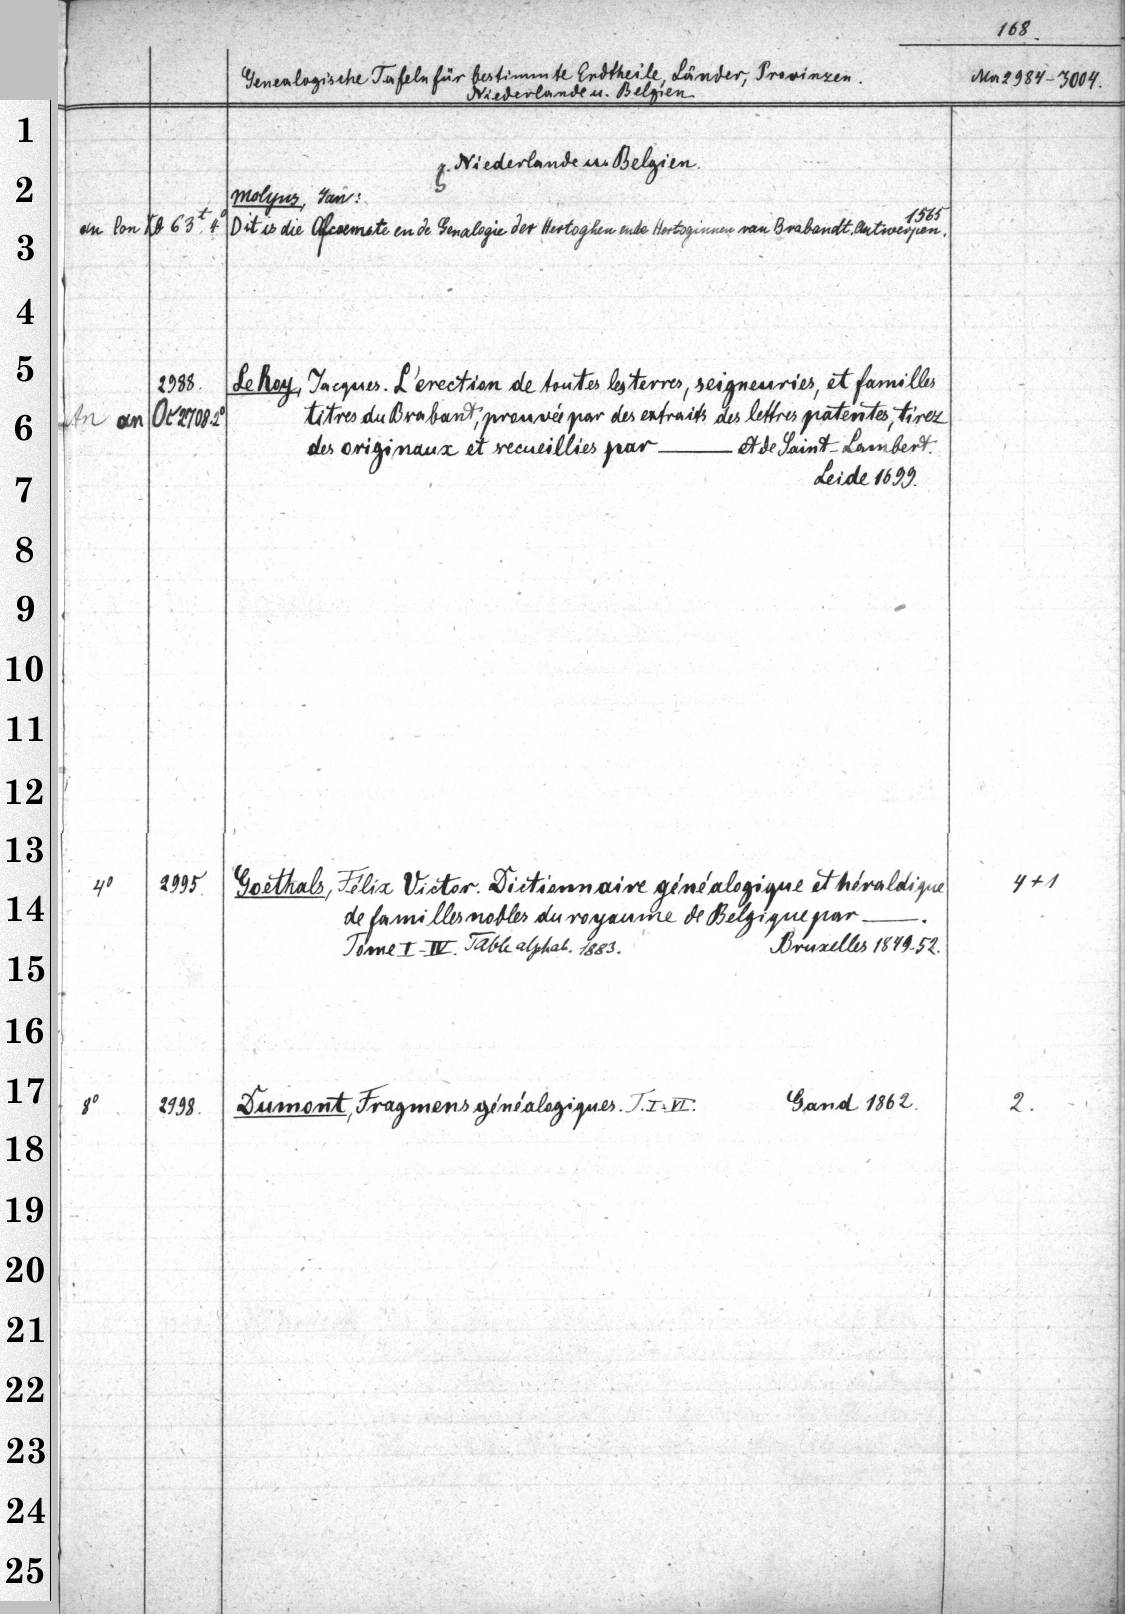 168.
Genealogische Tafeln für bestimmte Erdtheile, Länder, Provinzen. Ma 2984-3004.
Niederlande u. Belgien
1
g. Niederlande u. Belgien.
2
Molyns, Jan:
1565
an 63t 4° Dit is die Afcoemste en de Genalogie der Hertoghen ende Hertoginnen van Brabandt. Antwerpen.
3
4
5
2988. Le Roy, Jacques. L'erection de toutes les terres, seigneuries, et familles
6
An an Oc 2708.2° titres du Brabant, prouvé par des extraits des lettres patentes, tirez
des originaux et recueillies par ——— et de Saint-Lambert.
7
Leide 1699.
8
9
10
11
12
13
4° 2995. Goethals, Félix Victor. Dictionnaire généalogique et héraldique 4+1
14
de familles nobles du royaume de Belgique par ———.
Tome I-IV. Table alphab. 1883. Bruxelles 1849-52.
15
16
17
8° 2998. Dumont, Fragmens généalogiques. T. I-VI. Gand 1862. 2.
18
19
20
21
22
23
24
25